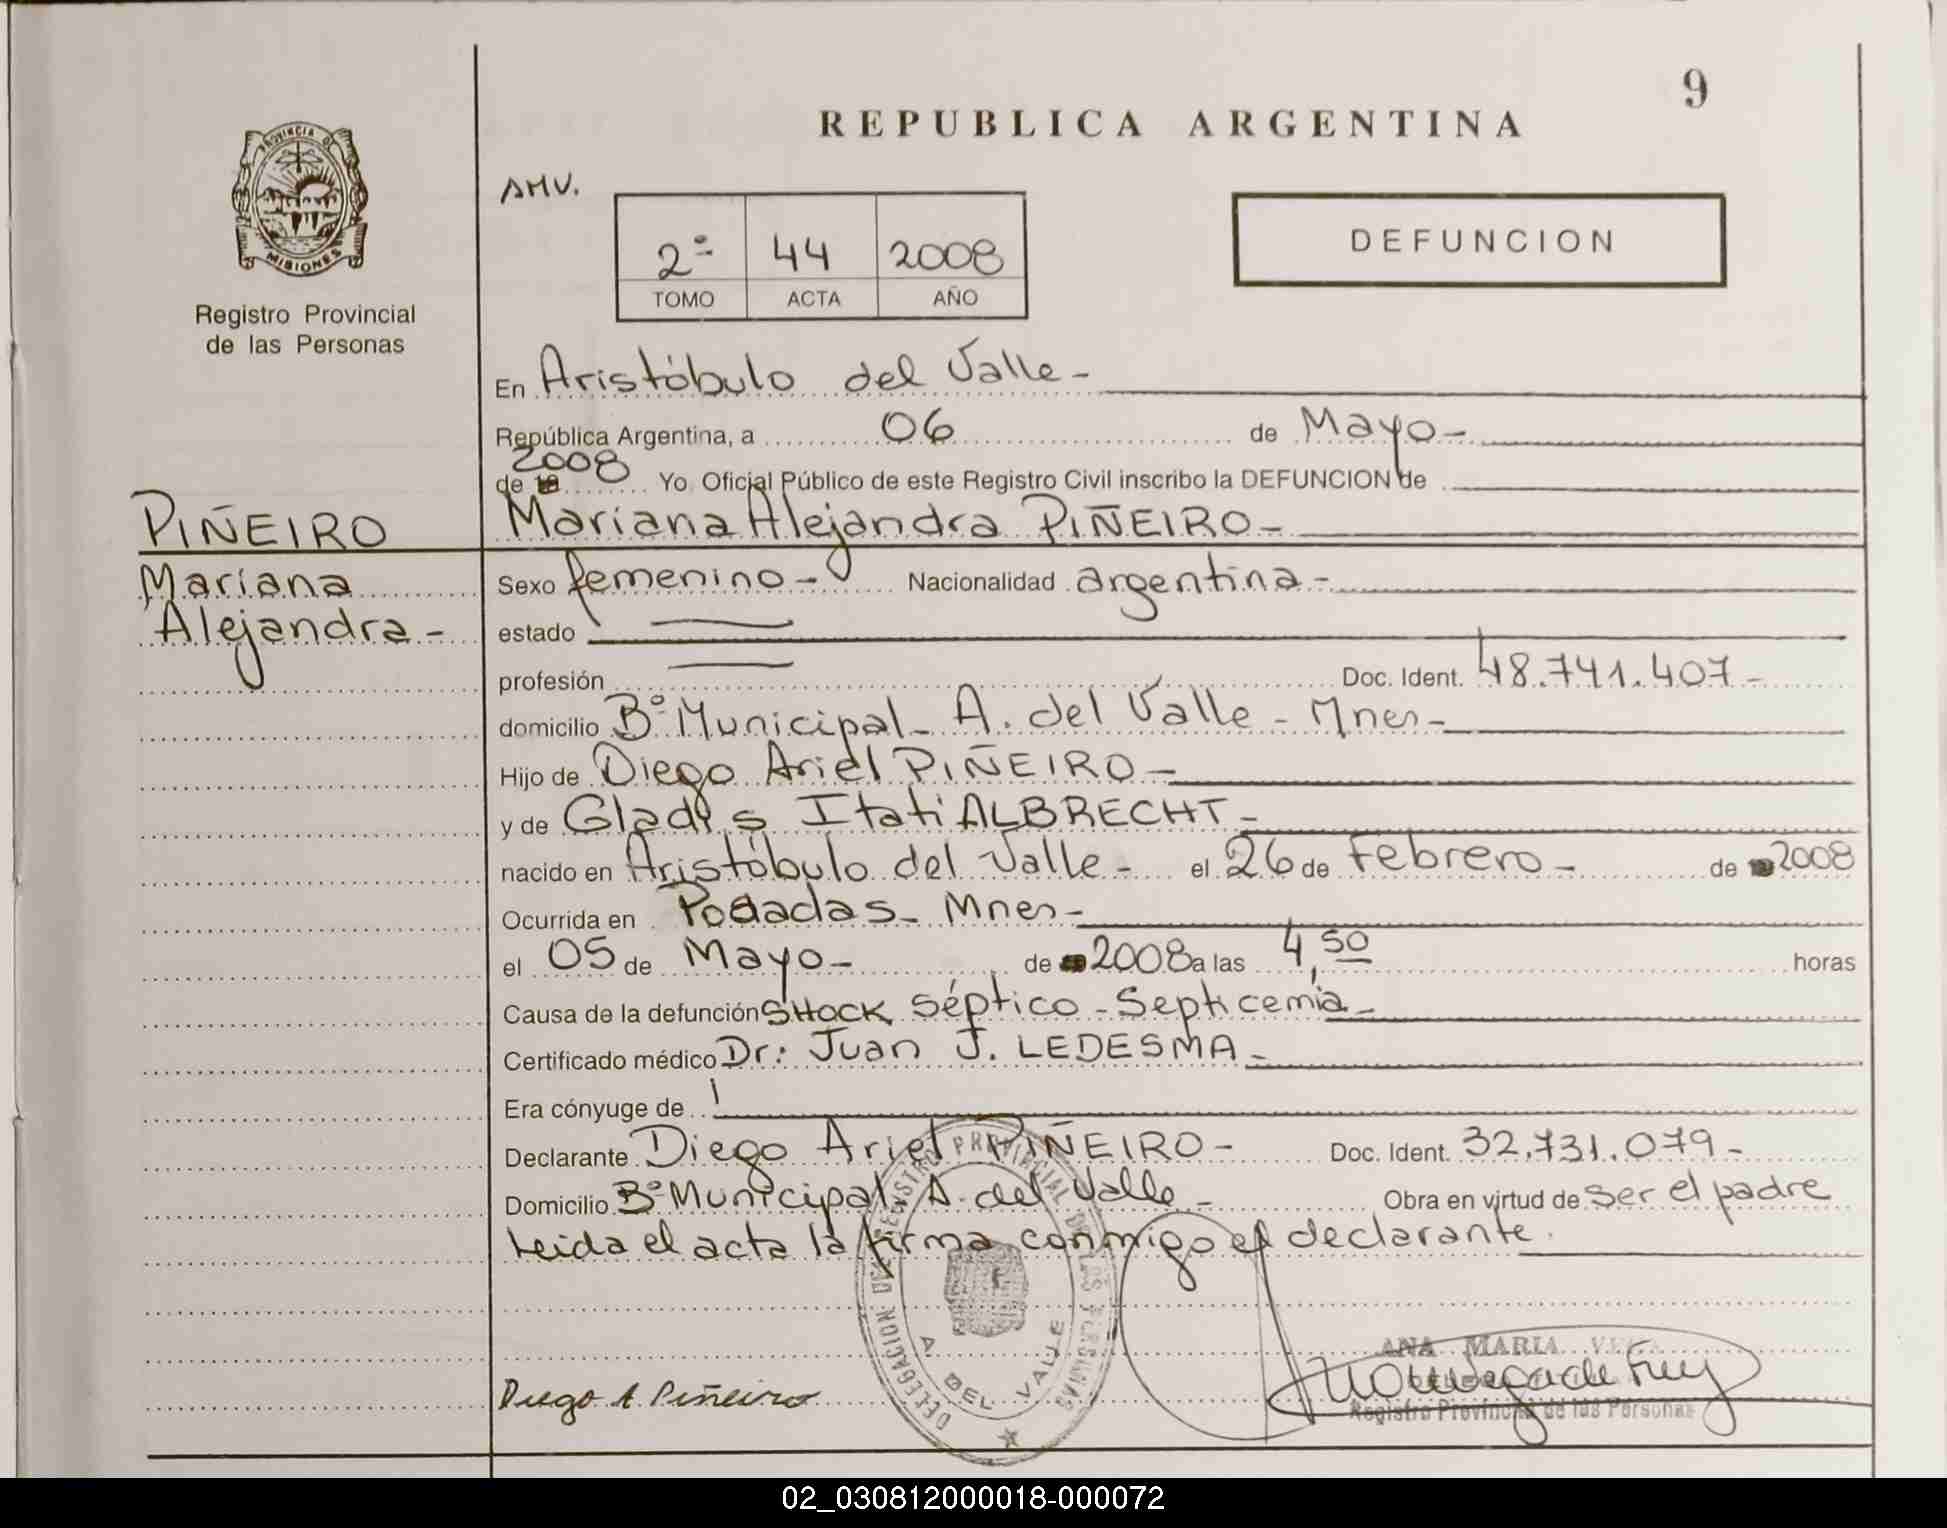 9
REPUBLICA ARGENTINA
PROVINCIA DE
MISIONES
Registro Provincial
de las Personas
AMV.
2º 44 2008
TOMO ACTA AÑO
DEFUNCION
En Aristóbulo del Valle -
República Argentina, a 06 de Mayo -
de 2008 Yo Oficial Público de este Registro Civil inscribo la DEFUNCION de
PIÑEIRO
Mariana
Alejandra -
Mariana Alejandra PIÑEIRO -
Sexo femenino - Nacionalidad argentina -
estado
profesión Doc. Ident. 48.741.407 -
domicilio Bº Municipal - A. del Valle - Mnes -
Hijo de Diego Ariel PIÑEIRO -
y de Gladys Itati ALBRECHT -
nacido en Aristóbulo del Valle - el 26 de Febrero - de 2008
Ocurrida en Posadas - Mnes -
el 05 de Mayo - de 2008 a las 4,50 horas
Causa de la defunción SHOCK Séptico - Septicemia -
Certificado médico Dr: Juan J. LEDESMA -
Era cónyuge de
Declarante Diego Ariel PIÑEIRO - Doc. Ident. 32.731.079 -
Domicilio Bº Municipal A. del Valle - Obra en virtud de ser el padre
Leida el acta la firma conmigo el declarante.
DELEGACION DEL REGISTRO PROVINCIAL DE LAS PERSONAS
A. DEL VALLE
Diego A. Piñeiro
ANA MARIA
Registro Provincial de las Personas
02_030812000018-000072